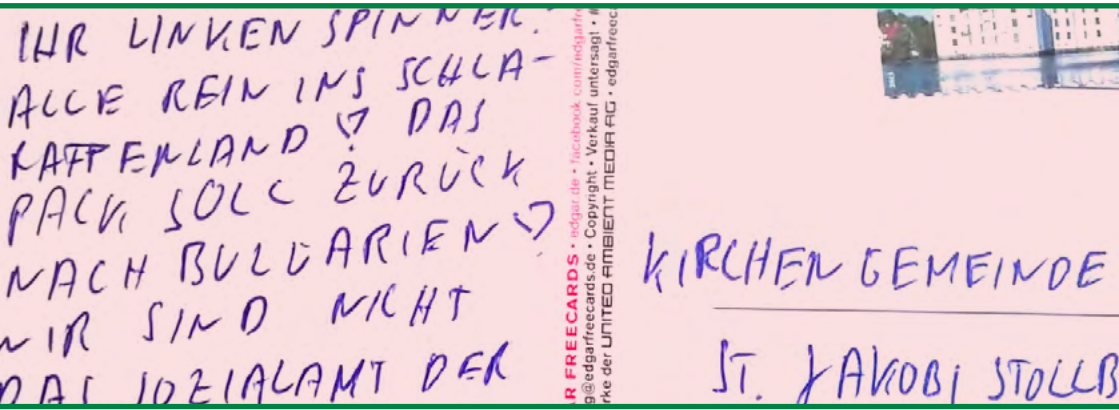 IHR LINKEN SPINNER!
ALLE REIN INS SCHLA-
RAFFENLAND! DAS
PACK SOLL ZURÜCK
NACH BULGARIEN!
WIR SIND NICHT
DAS SOZIALAMT DER
R FREECARDS • edgar.de • facebook.com/edgarfre
g@edgarfreecards.de • Copyright • Verkauf untersagt •
rke der UNITED AMBIENT MEDIA AG • edgarfreec
KIRCHENGEMEINDE
ST. JAKOBI STOLLB